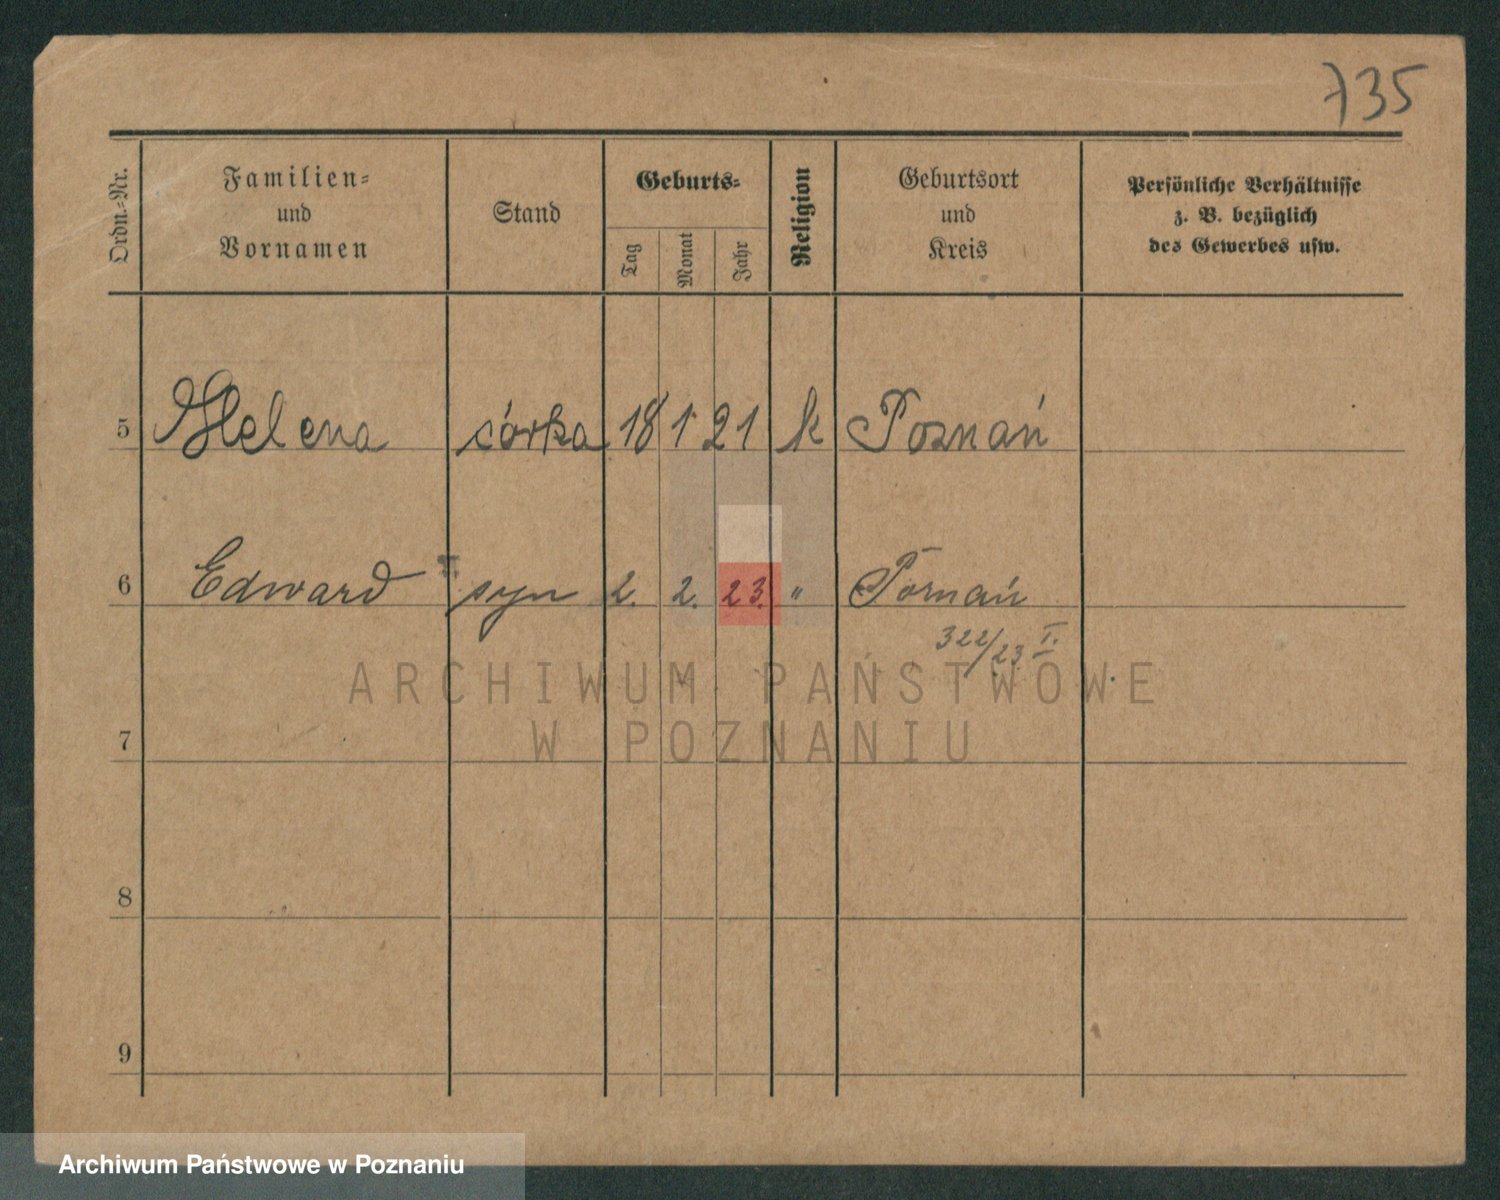 735
Ordn.-Nr.
Familien-
und
Vornamen
Stand
Geburts-
Tag
Monat
Jahr
Religion
Geburtsort
und
Kreis
Persönliche Verhältnisse
z. B. bezüglich
des Gewerbes usw.
5 Helena córka 18 1 21 k Poznań
6 Edward syn 2. 2. 23. " Poznań
322/23 I.
ARCHIWUM PAŃSTWOWE
W POZNANIU
7
8
9
Archiwum Państwowe w Poznaniu